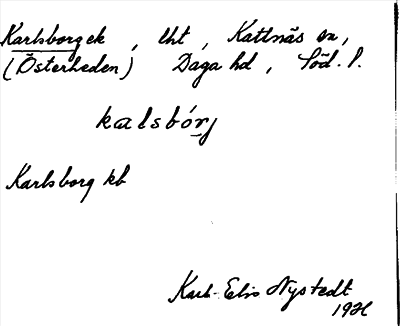 Karlsborg ek , lht , Kattnäs sn,
(Österheden) Daga hd , Söd. l.
kalsbórj
Karlsborg kb
Karl-Eric Nystedt